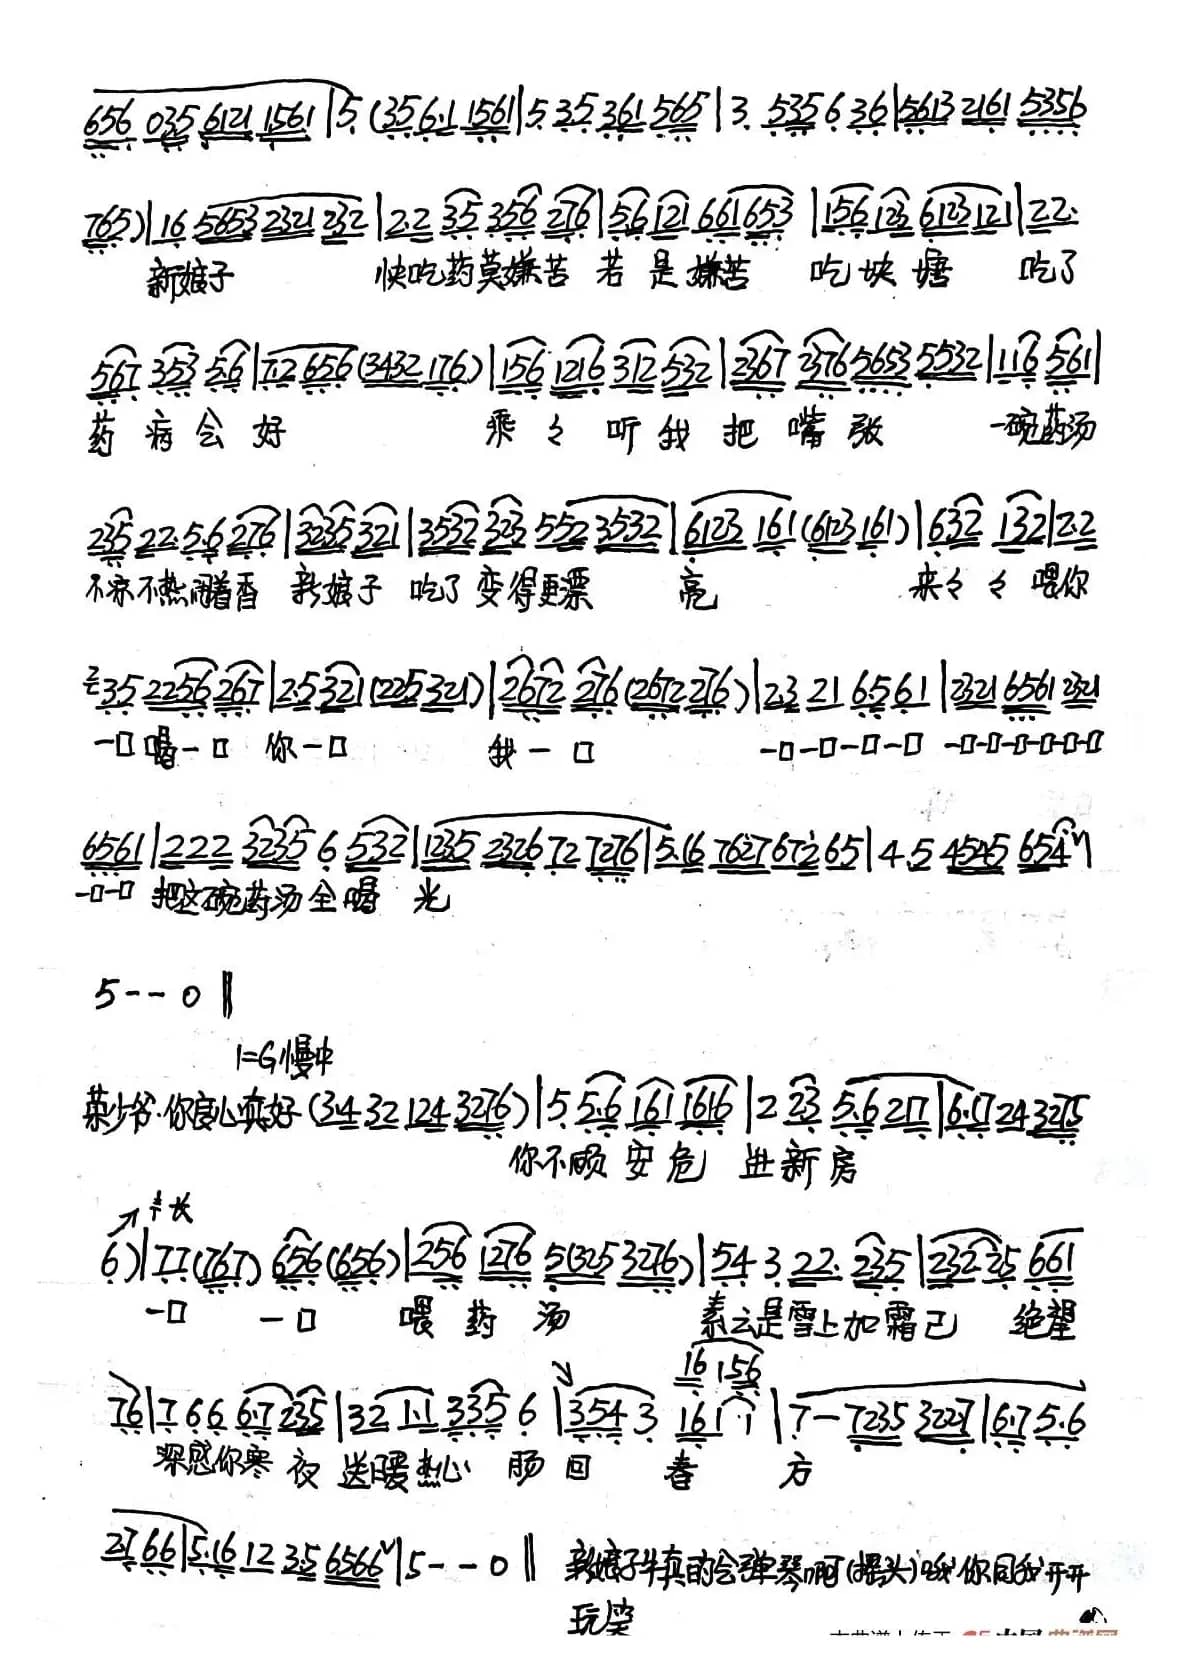 656 035 6121 1561 | 5. (35 6.1 1561 | 5. 35 361 565 | 3. 535 6 36 | 5613 2161 5356
765) | 16 5653 2321 232 | 2.2 35 356 276 | 5.6 121 661653 | 156 123 6123 121 | 22.
新娘子 快吃药莫嫌苦 若是嫌苦 吃块糖 吃了
567 353 5.6 | 7.2 656 (3432 176.) | 156 1216 312 532 | 2367 2376 5653 5532 | 116 561 |
药病会好 乖々听我把嘴张 一碗药汤
235 22. 5.6 276 | 3235 321 | 3532 323 552 3532 | 6123 161 (6123 161) | 632 132 | 2.2
不凉不热闻着香 新娘子 吃了变得更漂亮 来々々喂你
235 2256 267 | 2.5 321 (225 321) | 2672 276 (2672 276) | 2.3 21 6.5 61 | 2321 6561 2321
一口喝一口 你一口 我一口 一口一口一口一口 一口一口一口一口一口一口
6561 | 222 3235 6 532 | 1235 2326 72 7276 | 5.16 7627 672 65 | 4.5 4545 654
一口一口 把这碗药汤全喝光
5 - - 0 ‖
1=G慢中
荣少爷·你良心真好 (34 32 124 3276) | 5 5.6 161 1616 | 2 23 5.6 217 | 6.17 24 3275
你不顾安危 进新房
长
6) | 77 (767) 656 (656) | 256 1276 5 (325 3276) | 54 3. 22. 235 | 232 25 661
一口 一口 喂药汤 素云是雪上加霜已绝望
16 156
76 | 7 66 6.7 235 | 32 1.1 335 6 | 354 3 161 1 | 7 - 7235 3227 | 6.7 5.6
深感你寒夜送暖热心肠回春方
27 66 | 5.16 12 3.5 6566 | 5 - - 0 ‖ 新娘子牛真的会弹琴啊(摇头)哦你同我开开
玩笑